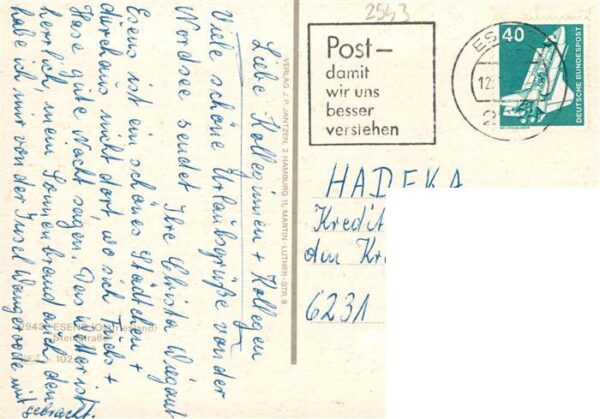 2543
Post—
damit
wir uns
besser
verstehen
ES
12.
40
DEUTSCHE BUNDESPOST
Liebe Kolleginnen + Kollegen
Viele schöne Urlaubsgrüße von der
Nordsee sendet Ihre Christa
Esens ist ein schönes Städtchen +
durchaus nicht dort, wo sich Fuchs +
Hase gute Nacht sagen. Das Wetter ist
herrlich, mein Sonnenbrand auch, den
habe ich mir von der Insel Wangerooge mit
gebracht.
VERLAG J. P. JANTZEN, 2 HAMBURG 11, MARTIN-LUTHER-STR. 8
2943 ESENS (Ostfriesland)
Steinstraße
102
HADEKA
Kredit
den Kr
6231